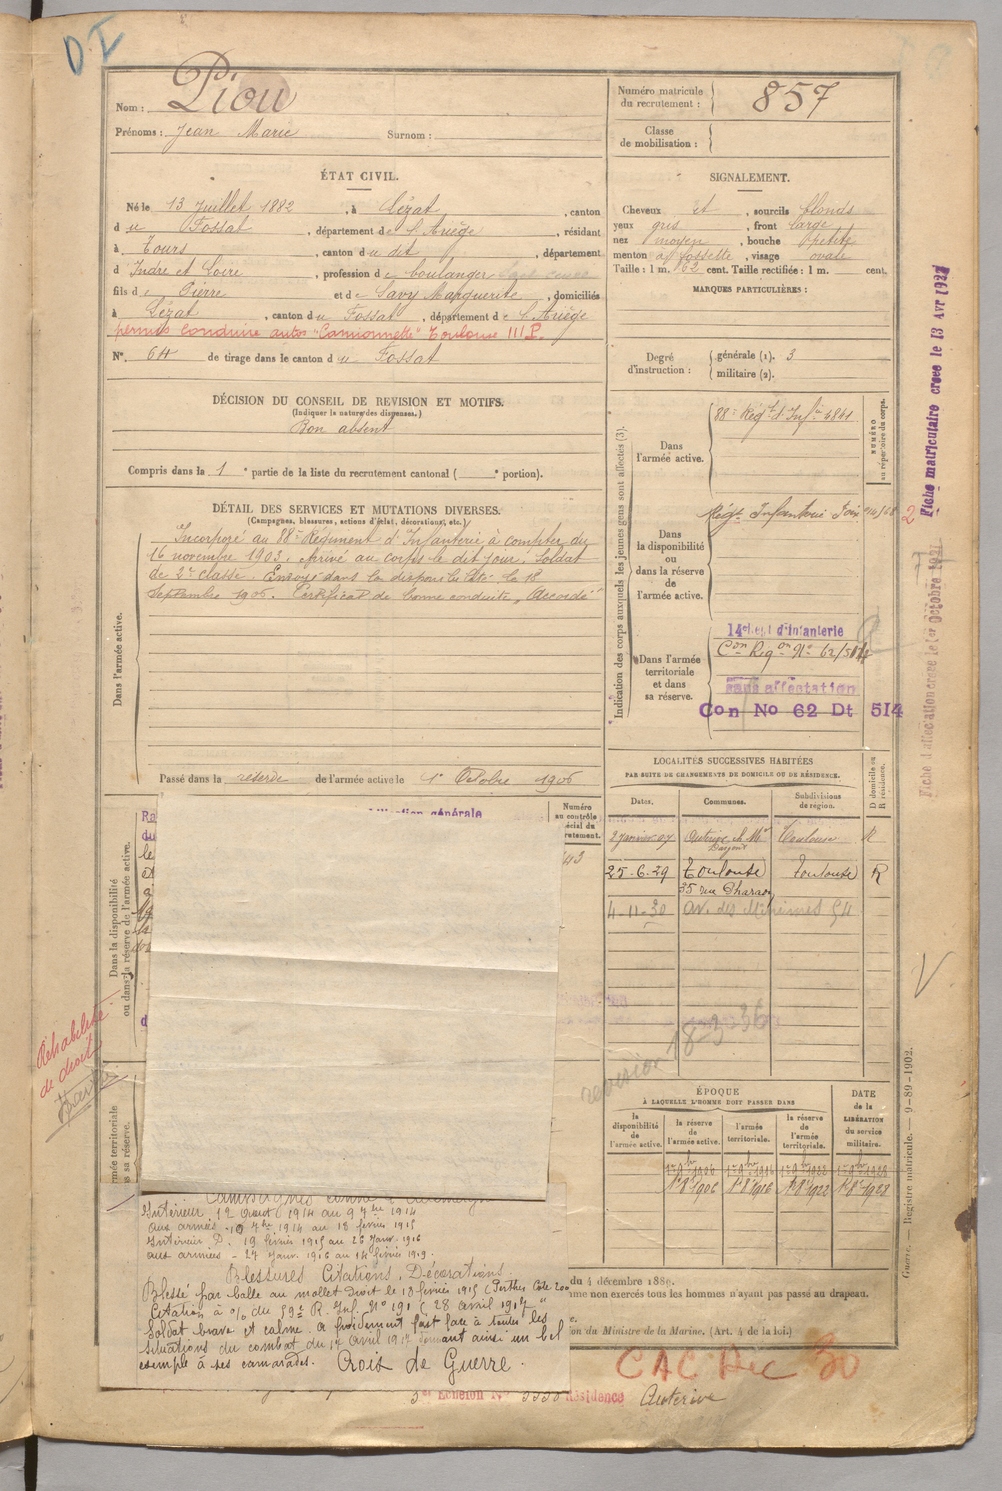 D.I
Nom : Piou
Prénoms : Jean Marie Surnom :
Numéro matricule du recrutement : 857
Classe de mobilisation :
ÉTAT CIVIL.
Né le 13 Juillet 1882, à Lézat, canton
du Fossat, département de l'Ariège, résidant
à Tours, canton du dit, département
d'Indre et Loire, profession de boulanger
fils de Pierre et de Savy Marguerite, domiciliés
à Lézat, canton du Fossat, département de l'Ariège
permis conduire autos "Camionnette" Toulouse
N° 64 de tirage dans le canton du Fossat
SIGNALEMENT.
Cheveux et, sourcils blonds
yeux gris, front large
nez moyen, bouche petite
menton à fossette, visage ovale
Taille : 1 m. 62 cent. Taille rectifiée : 1 m. cent.
MARQUES PARTICULIÈRES :
Degré d'instruction : générale (1). 3
militaire (2).
DÉCISION DU CONSEIL DE REVISION ET MOTIFS.
(Indiquer la nature des dispenses.)
Bon absent
Compris dans la 1e partie de la liste du recrutement cantonal ( e portion).
DÉTAIL DES SERVICES ET MUTATIONS DIVERSES.
(Campagnes, blessures, actions d'éclat, décorations, etc.)
Dans l'armée active.
Incorporé au 88e Régiment d'Infanterie à compter du
16 novembre 1903. Arrivé au corps le dit jour. Soldat
de 2e classe. Envoyé dans la disponibilité le 18
Septembre 1906. Certificat de bonne conduite "Accordé"
Passé dans la réserve de l'armée active le 1er Octobre 1906
Indication des corps auxquels les jeunes gens sont affectés (3).
NUMÉRO au répertoire du corps.
Dans l'armée active.
88e Régt d'Infie 6841
Dans la disponibilité ou dans la réserve de l'armée active.
Régt Infanterie Foix
Dans l'armée territoriale et dans sa réserve.
14e Rgt d'infanterie
Con Rég on No 62/514
sans affectation
Con No 62 Dt 514
Fiche matriculaire créée le 13 Avr 1927
Fiche d'affectation créée le 1er octobre
LOCALITÉS SUCCESSIVES HABITÉES
PAR SUITE DE CHANGEMENTS DE DOMICILE OU DE RÉSIDENCE.
Dates. Communes. Subdivisions de région. D domicile ou R résidence.
2 Janvier 07 Toulouse R
25-6-29 Toulouse Toulouse R
35 rue Pharaon
4-11-30 av. des Minimes 54
revision 18-3-36
Numéro au contrôle spécial du recrutement.
Dans la disponibilité ou dans la réserve de l'armée active.
Réhabilité de droit
ÉPOQUE
À LAQUELLE L'HOMME DOIT PASSER DANS
DATE de la LIBÉRATION du service militaire.
la disponibilité de l'armée active. la réserve de l'armée active. l'armée territoriale. la réserve de l'armée territoriale.
1er 9bre 1906 1er 9bre 1916 1er 9bre 1922 1er 9bre 1928
1er 8bre 1906 1er 8bre 1916 1er 8bre 1922 1er 8bre 1928
Campagnes contre l'Allemagne
Intérieur 12 Aout 1914 au 9 7bre 1914
aux armées - 10 7bre 1914 au 18 février 1915
Intérieur D. 19 février 1915 au 26 Janv. 1916
aux armées - 27 Janv. 1916 au 14 février 1919.
Blessures Citations, Décorations
Blessé par balle au mollet droit le 13 février 1915 (Perthes Cote 200
Citation à l'o/ du 59e R. Inf. No 191 (28 avril 1917 "
Soldat brave et calme, a froidement fait face à toutes les
situations du combat du 17 avril 1917 donnant ainsi un bel
exemple à ses camarades. Croix de Guerre.
du 4 décembre 1889.
mme non exercés tous les hommes n'ayant pas passé au drapeau.
on du Ministre de la Marine. (Art. 4 de la loi.)
CAC Dec 30
Echelon No Résidence Auterive
Guerre. — Registre matricule. — 9-89-1902.